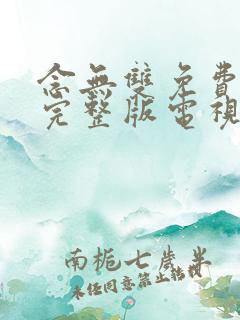 念無雙免費
完整版電視
南梔七歲半
未经同意禁止转载